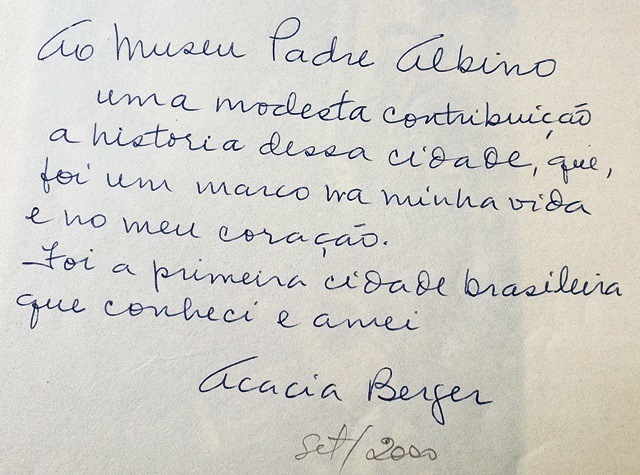 Ao Museu Padre Albino
uma modesta contribuição
a historia dessa cidade, que,
foi um marco na minha vida
e no meu coração.
Foi a primeira cidade brasileira
que conheci e amei
Acacia Berger
set/2000